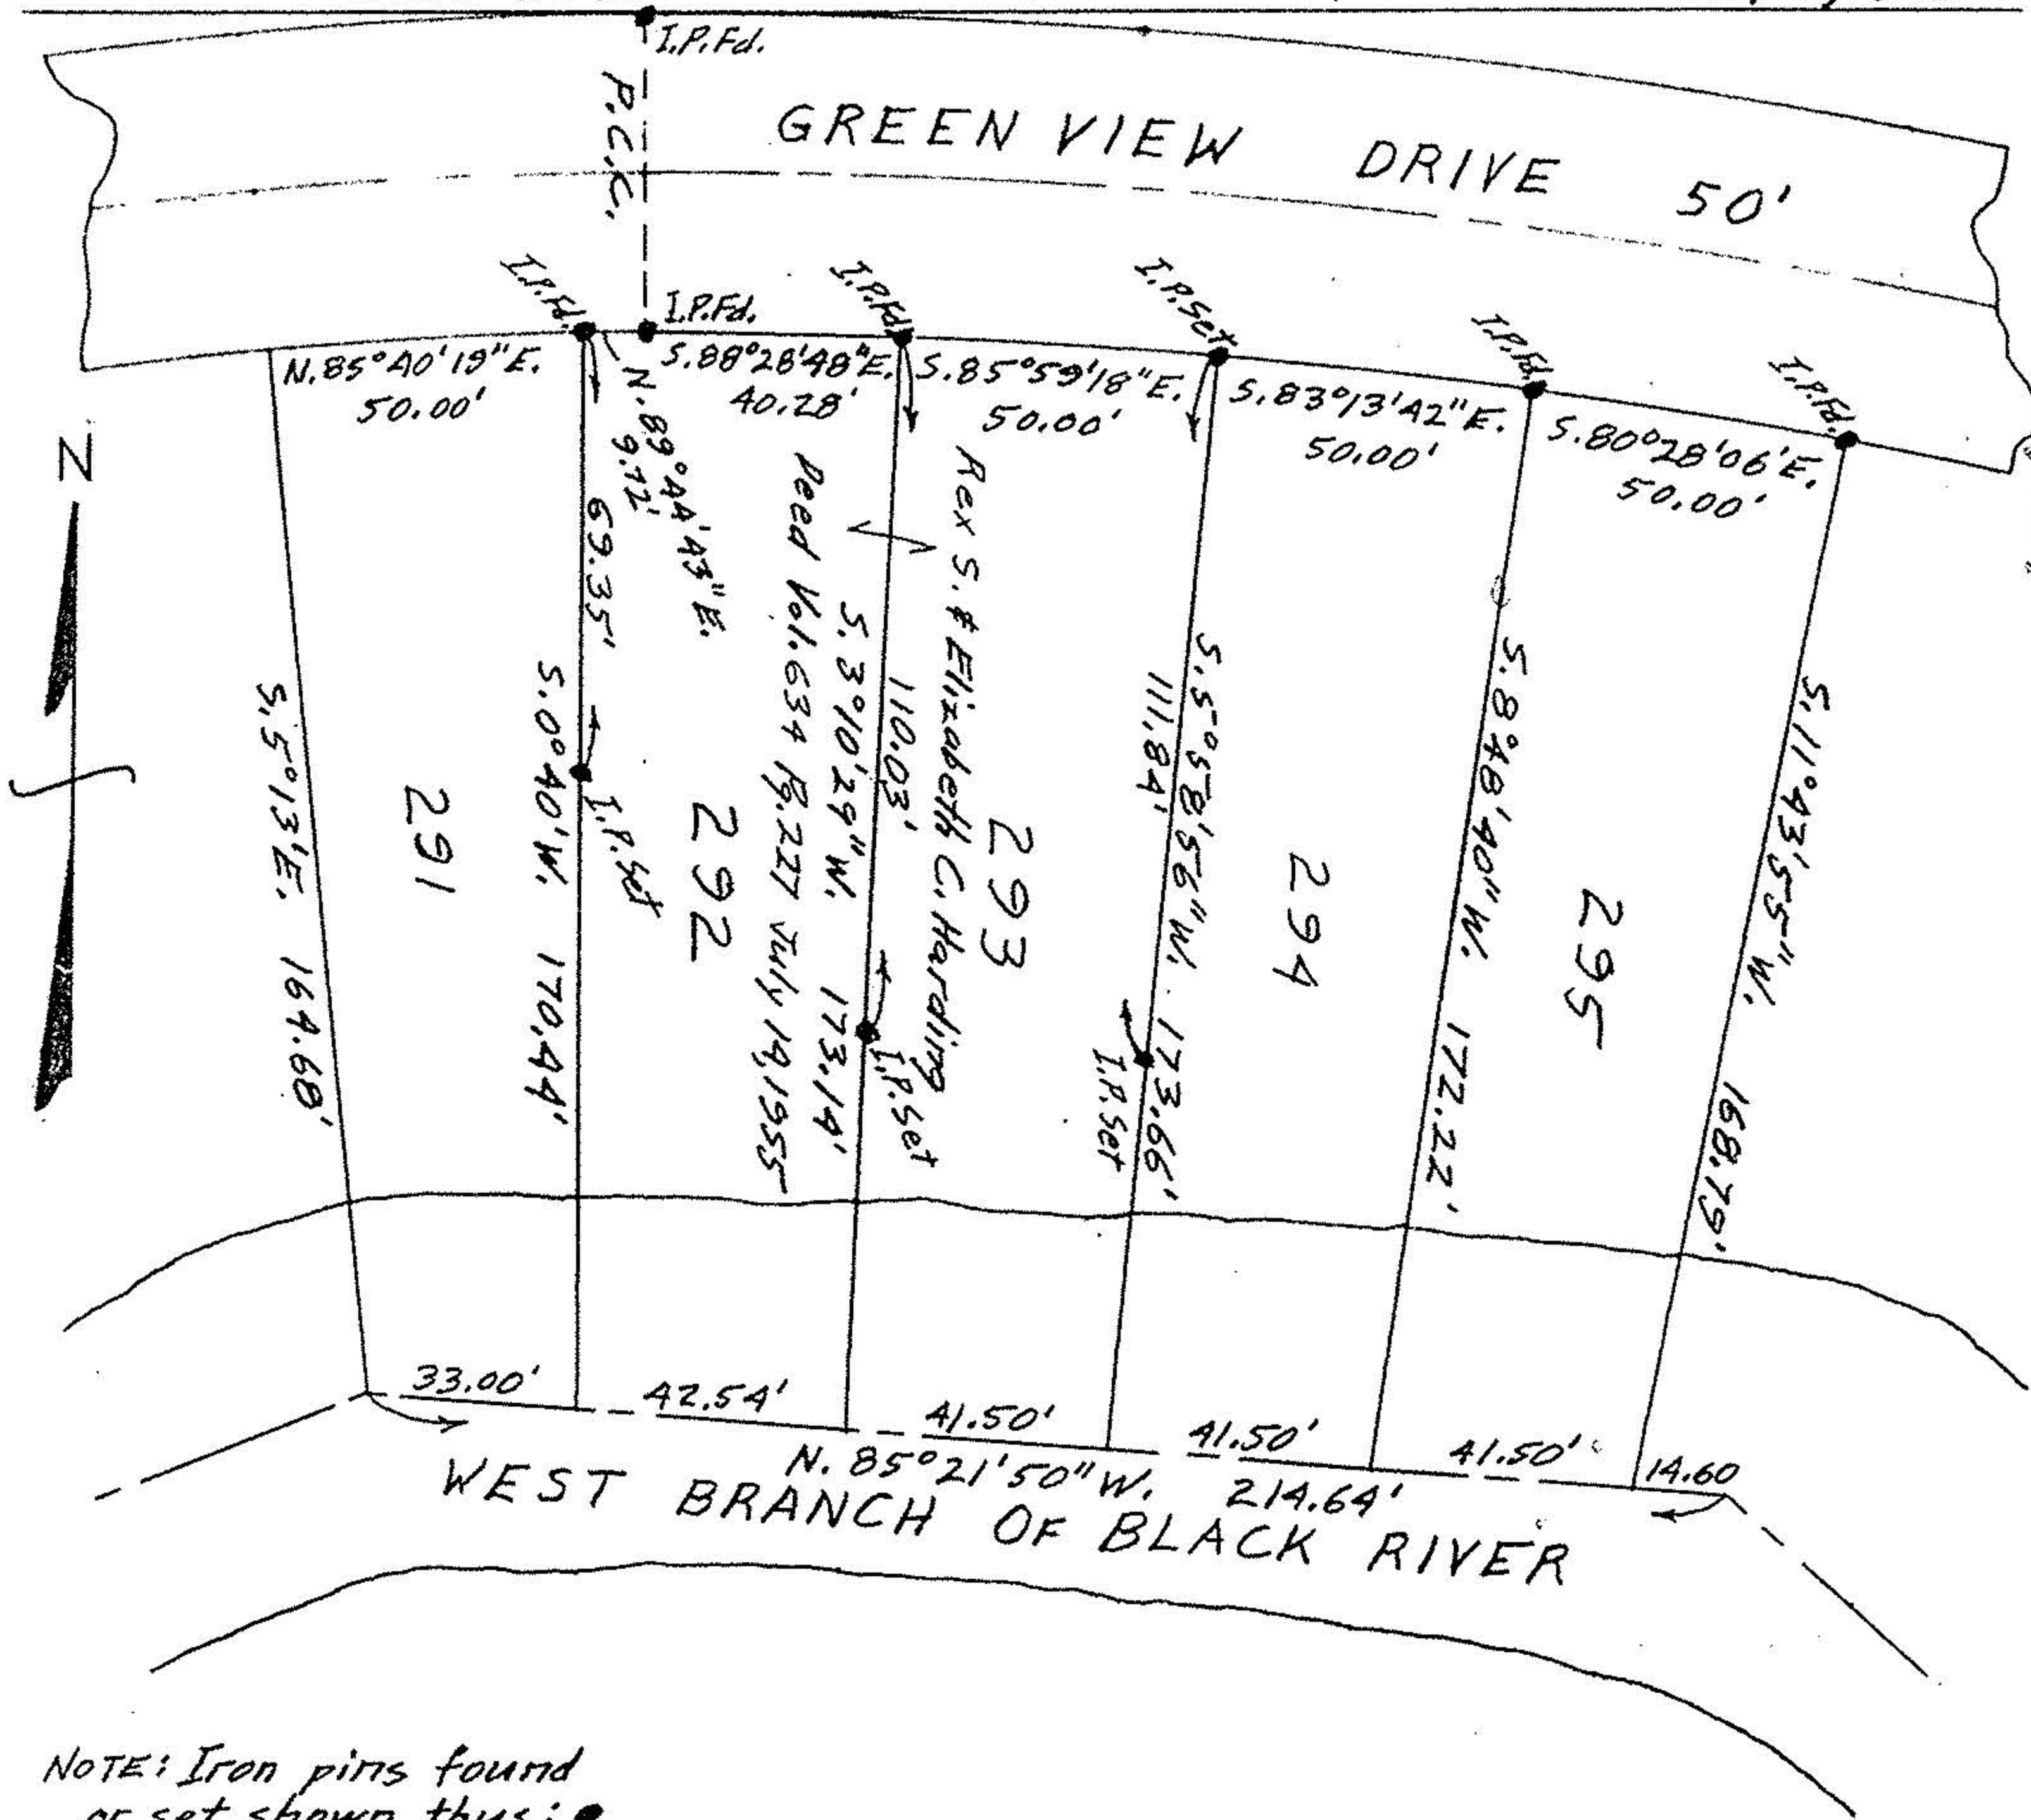 I.P.Fd.
P.C.C.
GREEN VIEW DRIVE 50'
I.P.Fd.
I.P.Fd.
I.P.Fd.
I.P.Set
I.P.Fd.
I.P.Fd.
N.85°40'19"E.
50.00'
N.89°44'43"E.
9.72'
S.88°28'48"E.
40.28'
S.85°59'18"E.
50.00'
S.83°13'42"E.
50.00'
S.80°28'06"E.
50.00'
N
S.5°13'E. 164.68'
291
69.35'
S.0°40'W. 170.44'
I.P.Set
292
Deed Vol.634 Pg.227 July 19,1955
S.3°10'29"W. 173.14'
110.03'
I.P.Set
Rex S. & Elizabeth C. Harding
293
S.5°58'56"W. 173.66'
111.84'
I.P.Set
294
S.8°48'40"W. 172.22'
295
S.11°43'55"W. 168.79'
33.00'
42.54'
41.50'
41.50'
41.50'
14.60
N.85°21'50"W. 214.64'
WEST BRANCH OF BLACK RIVER
NOTE: Iron pins found
or set shown thus: ●